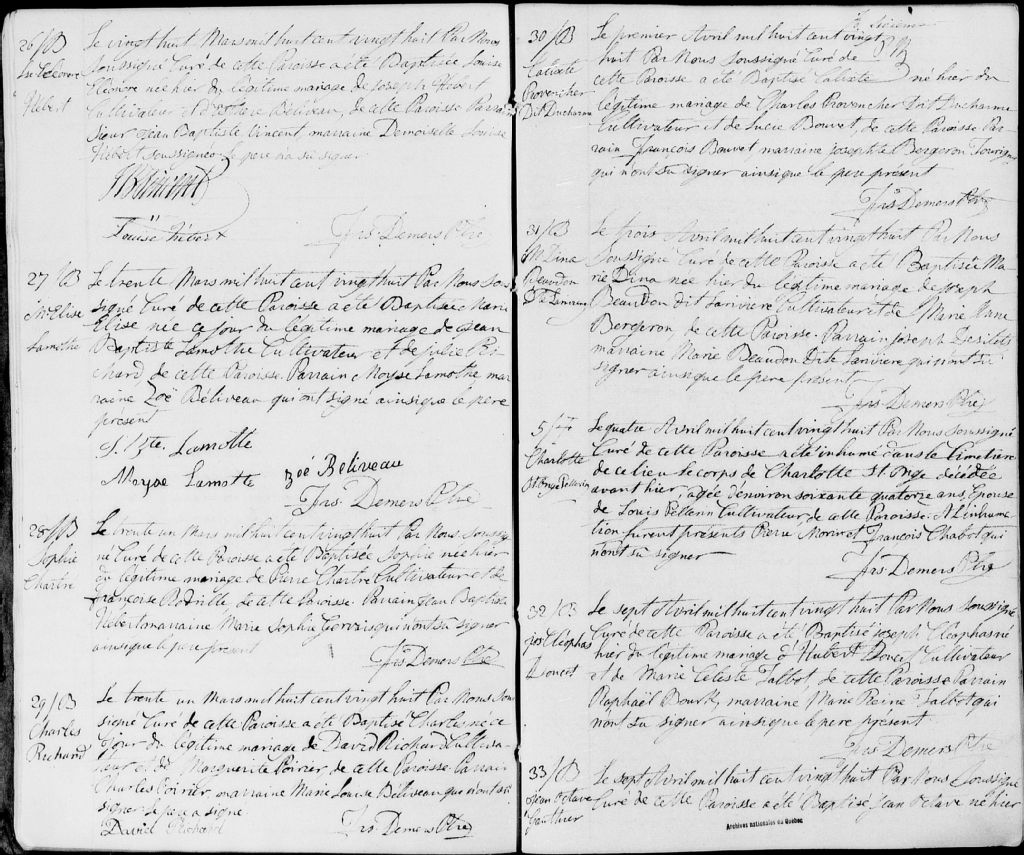 26/B
Lse Clemere
Hebert
Le vingt huit Mars mil huit cent vingt huit Par Nous
Soussigné Curé de cette Paroisse a eté Baptisée Louise
Clemere née hier du légitime mariage de Joseph Hebert
Cultivateur et de Béliveau, de cette Paroisse Parrain
Sieur Jean Baptiste Vincent marraine Demoiselle Louise
Hébert soussignés le pere n'a su signer
JB Vincent
Louise Hébert
Frs Demers Ptre
27/B
M Elise
Lamothe
Le trente Mars mil huit cent vingt huit Par Nous Sous
signé Curé de cette Paroisse a eté Baptisée Marie
Elise née ce jour du légitime mariage de Jean
Baptiste Lamothe Cultivateur et de Julie Ri-
chard de cette Paroisse. Parrain Moyse Lamothe mar
raine Zoé Béliveau qui ont signé ainsi que le pere
présent
J. Bte. Lamotte
Moyse Lamotte Zoé Béliveau
Frs. Demers Ptre
28/B
Sophie
Chartre
Le trente un Mars mil huit cent vingt huit Par Nous Soussig
né Curé de cette Paroisse a eté Baptisée Sophie née hier
du légitime mariage de Pierre Chartre Cultivateur et de
Françoise de cette Paroisse. Parrain Jean Baptiste
Hebert marraine Marie Sophie Gervais qui n'ont su signer
ainsi que le pere présent
Frs Demers Ptre
29/B
Charles
Richard
Le trente un Mars mil huit cent vingt huit Par Nous Sous
signé Curé de cette Paroisse a eté Baptisé Charles né ce
jour du légitime mariage de David Richard Cultiva-
teur et de Marguerite Poirier de cette Paroisse. Parrain
Charles Poirier marraine Marie Louise Béliveau qui n'ont su
signer le pere a signé
David Richard
Frs. Demers Ptre
30/B
Calixte
Provencher
Dit Ducharme
Le premier Avril mil huit cent vingt
huit Par Nous Soussigné Curé de
cette Paroisse a eté Baptisé Calixte né hier du
légitime mariage de Charles Provencher Dit Ducharme
Cultivateur et de Lucie Bouvet, de cette Paroisse Par
rain François Bouvet, marraine Josephte Bergeron Tourigny
qui n'ont su signer ainsi que le pere présent
Frs Demers Ptre
31/B
M Dina
Beaudon
Dt Lariviere
Le trois Avril mil huit cent vingt huit Par Nous
Soussigné Curé de cette Paroisse a eté Baptisée Ma-
rie Dina née hier du légitime mariage de Joseph
Beaudon dit Lariviere Cultivateur et de Marie Anne
Bergeron, de cette Paroisse. Parrain Joseph Desilets
marraine Marie Beaudon Dite Lariviere qui n'ont su
signer ainsi que le pere présent
Frs Demers Ptre
5/
Charlotte
St Onge Pellerin
Le quatre Avril mil huit cent vingt huit Par Nous Soussigné
Curé de cette Paroisse a eté inhumé dans le Cimetiere
de ce lieu le corps de Charlotte St. Onge décédée
avant hier, agée d'environ soixante quatorze ans, Epouse
de Louis Cultivateur, de cette Paroisse. A l'inhuma
tion furent présents Pierre et François Chabot qui
n'ont su signer
Frs Demers Ptre
32/B
Jos Cléophas
Doucet
Le sept Avril mil huit cent vingt huit Par Nous Soussigné
Curé de cette Paroisse a eté Baptisé Joseph Cléophas né
hier du légitime mariage d'Hubert Doucet Cultivateur
et de Marie Celeste Talbot, de cette Paroisse Parrain
Raphaël Bourk, marraine Marie Reine Talbot qui
n'ont su signer ainsi que le pere présent
Frs Demers Ptre
33/B
Jean Octave
Gauthier
Le sept Avril mil huit cent vingt huit Par Nous Soussigné
Curé de cette Paroisse a eté Baptisé Jean Octave né hier
Archives nationales du Québec